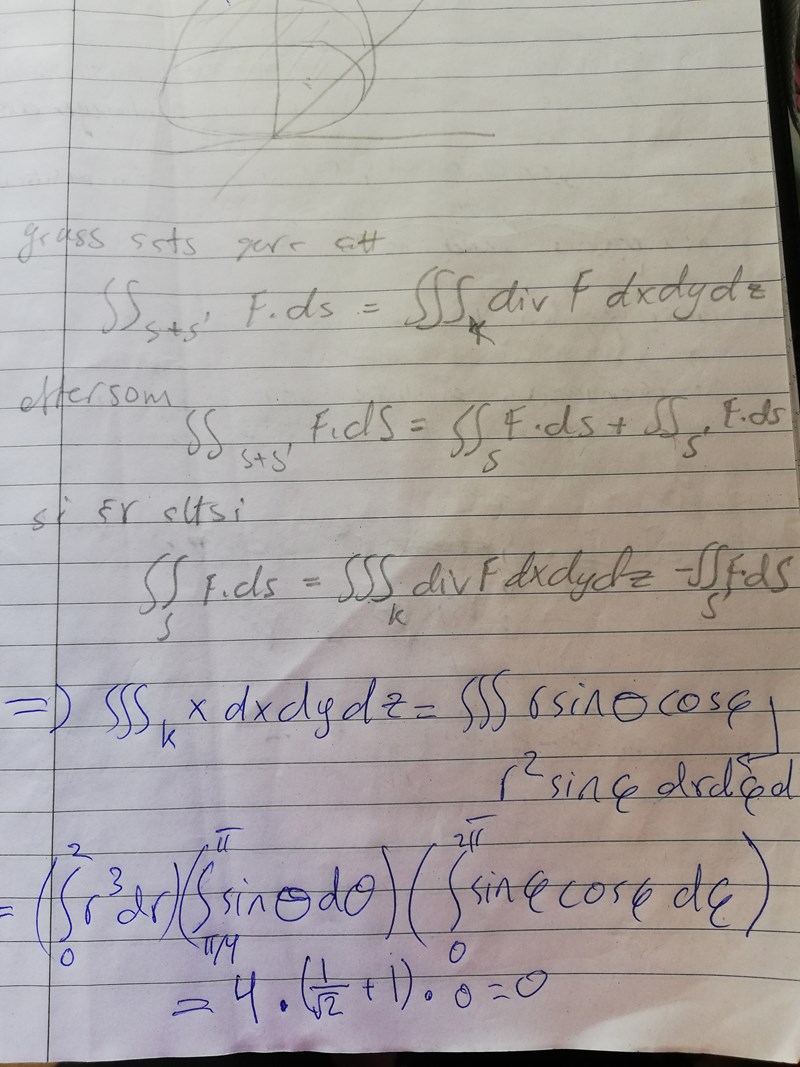 gauss sats ger att
∬_{S+S'} F·ds = ∭_K div F dxdydz
eftersom
∬_{S+S'} F·dS = ∬_S F·ds + ∬_{S'} F·ds
så är alltså
∬_S F·ds = ∭_K div F dxdydz - ∬_{S'} F·dS
=> ∭_K x dxdydz = ∭ r sin θ cos φ
r² sin φ dr dφ d
= (∫_0^2 r³ dr)(∫_{π/4}^{π} sin θ dθ)(∫_0^{2π} sin φ cos φ dφ)
= 4 · (1/√2 + 1) · 0 = 0